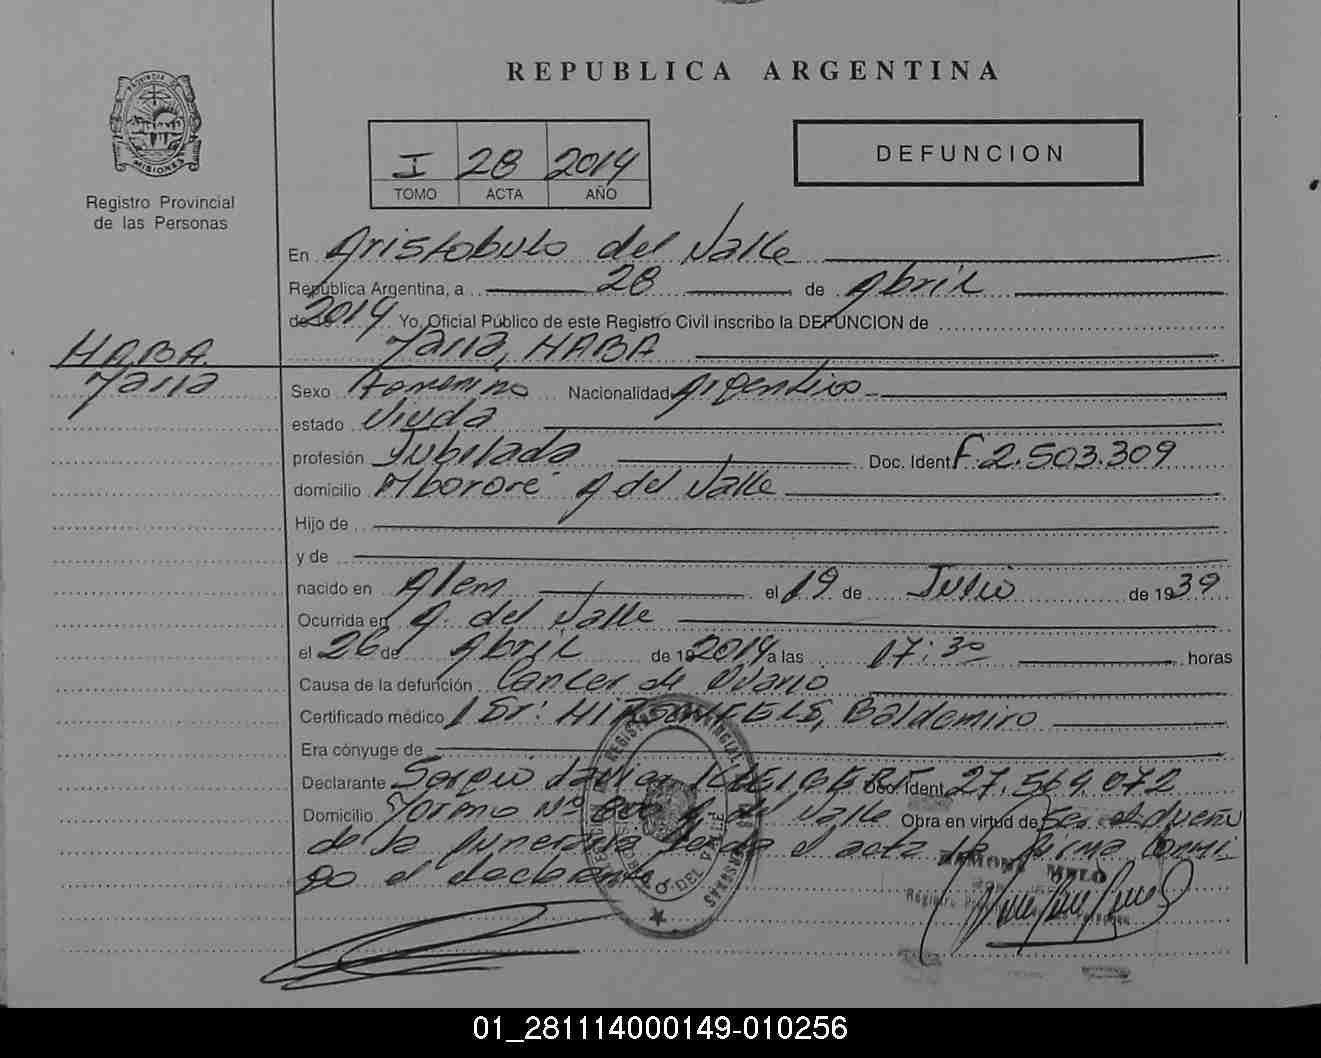 REPUBLICA ARGENTINA
PROVINCIA DE
MISIONES
Registro Provincial
de las Personas
I 28 2014
TOMO ACTA AÑO
DEFUNCION
En Aristobulo del Valle
República Argentina, a 28 de Abril
de 2014 Yo, Oficial Público de este Registro Civil inscribo la DEFUNCION de
HABA
Maria
Maria, HABA
Sexo Femenino Nacionalidad Argentina
estado Viuda
profesión Jubilada Doc. Ident F 2.503.309
domicilio Mbororé A del Valle
Hijo de
y de
nacido en Alem el 19 de Julio de 1939
Ocurrida en A. del Valle
el 26 de Abril de 19 2014 a las 17:30 horas
Causa de la defunción Cancer de Ovario
Certificado médico Dr: Baldomiro
Era cónyuge de
Declarante Sergio Javier Doc. Ident. 27.564.072
Domicilio Nº 800 A del Valle Obra en virtud de Ser el dueño
de la funeraria el acta la firma Conmi
go el declarante
MELO
01_281114000149-010256